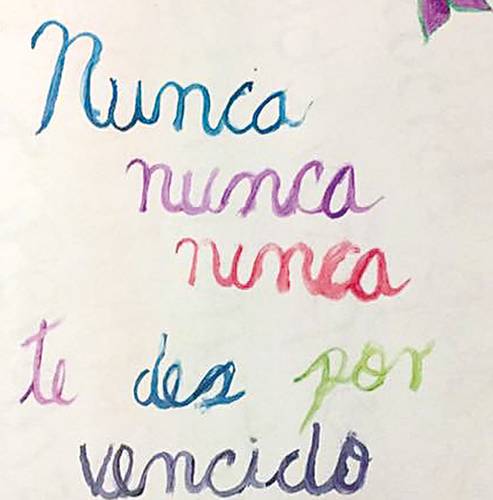 Nunca
nunca
nunca
te des por
vencido